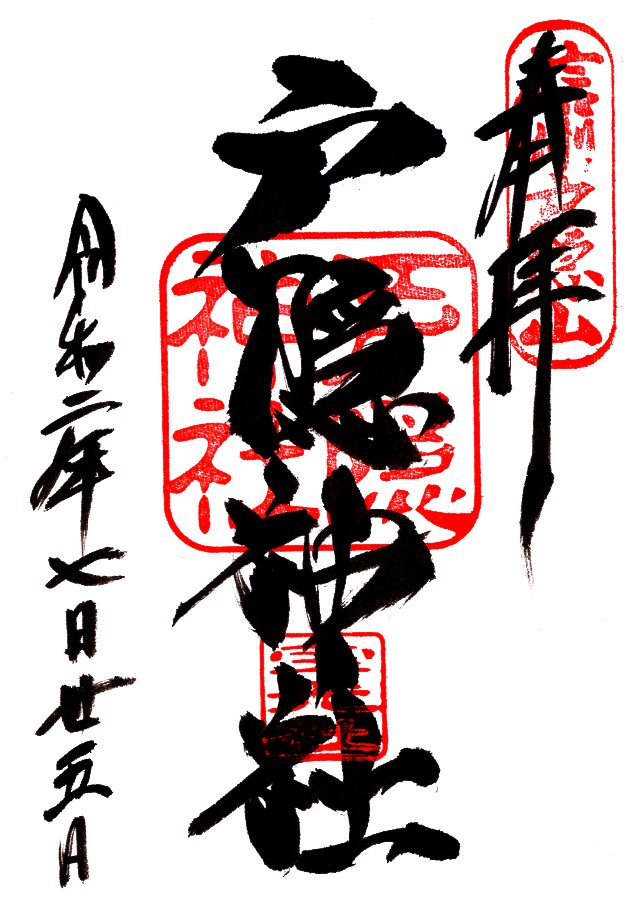 奉拝
信州戸隠山
戸隠神社
戸隠
神社
令和二年七月廿五日